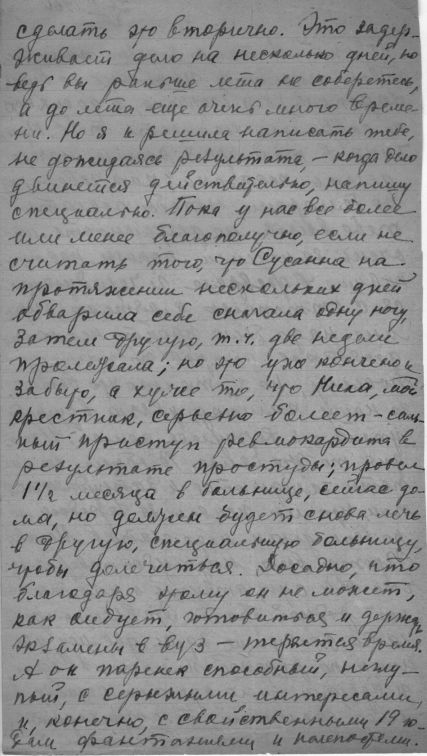 сделать это вторично. Это задер-
живает дело на несколько дней, но
ведь вы раньше лета не соберетесь,
а до лета еще очень много време
ни. Но я и решила написать тебе,
не дожидаясь результата, – когда дело
двинется действительно, напишу
специально. Пока у нас все более
или менее благополучно, если не
считать того, что Сусанна на
протяжении нескольких дней
обварила себе сначала одну ногу,
затем другую, т.ч. две недели
пролежала; но это уже кончено и
забыто, а хуже то, что Ника, мой
крестник, серьезно болеет – силь-
ный приступ ревмокардита в
результате простуды; провел
1 1/2 месяца в больнице, сейчас до-
ма, но должен будет снова лечь
в другую, специальную больницу,
чтобы долечиться. Досадно, что
благодаря этому он не может,
как следует, готовиться и держать
экзамены в вуз – теряется время.
А он паренек способный, неглу-
пый, с серьезными интересами,
и, конечно, с свойственными 19 го-
дам фантазиями и нелепостями.